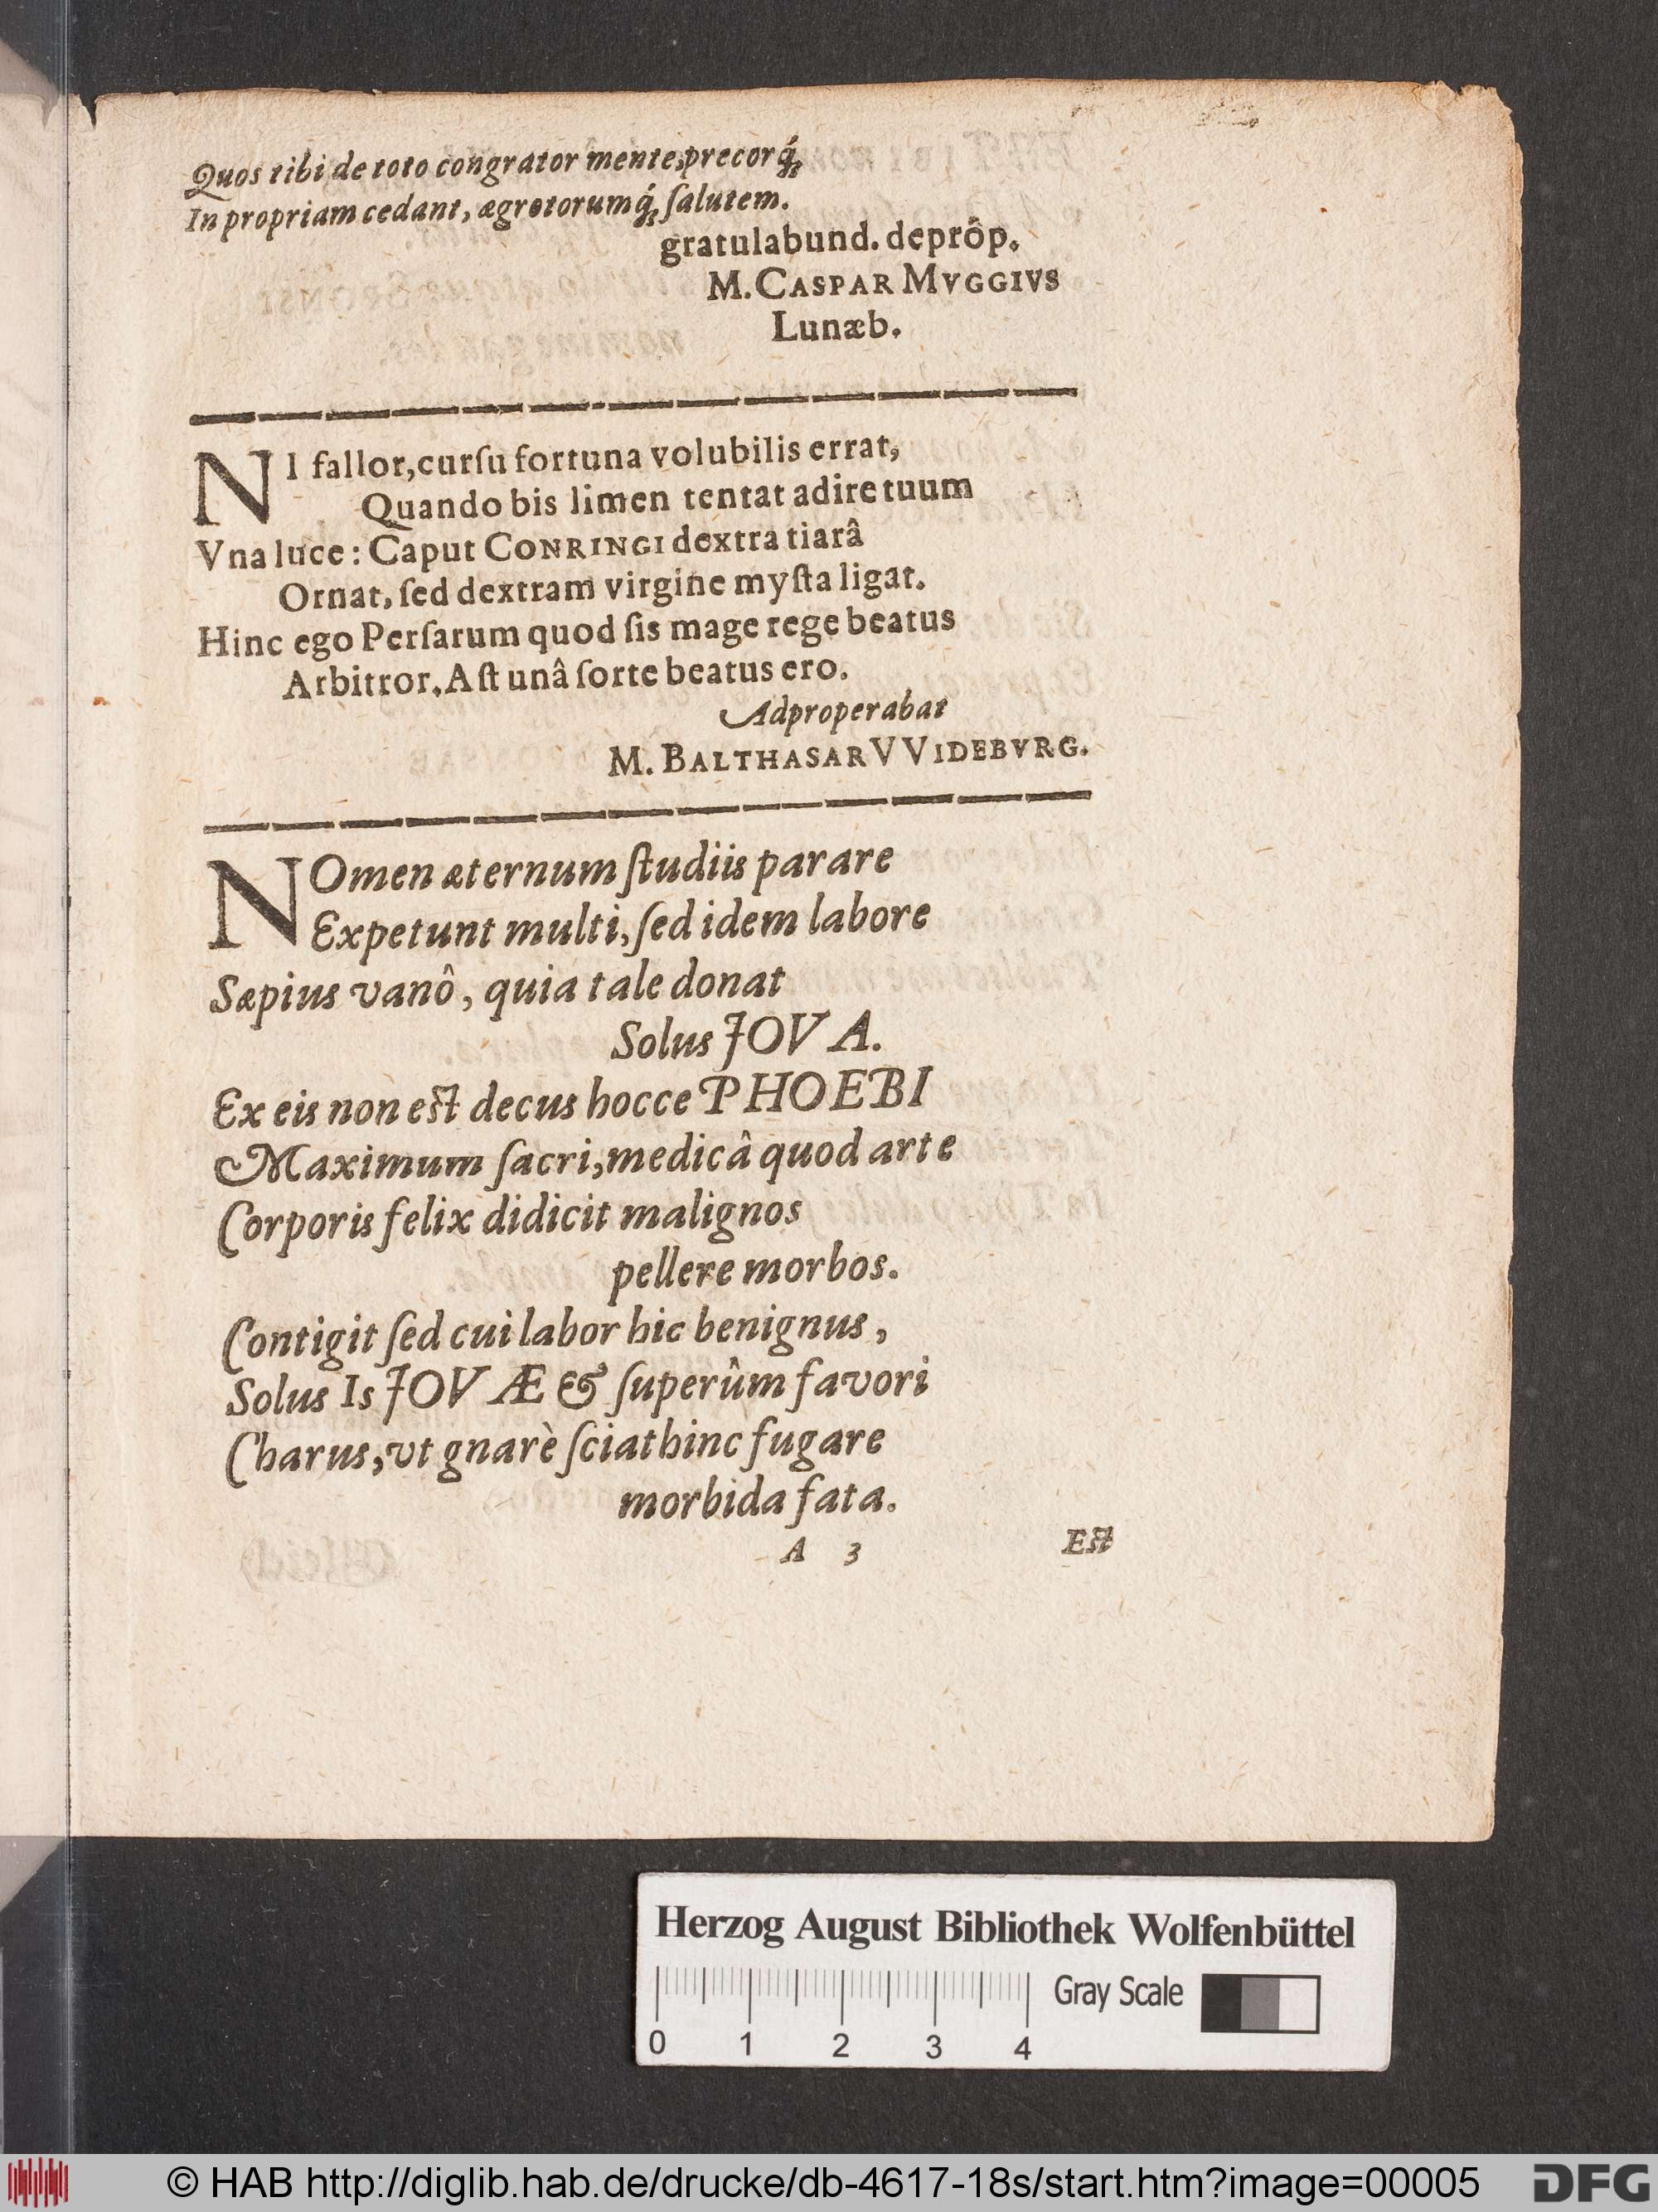 Quos tibi de toto congrator mente, precorq́;
In propriam cedant, ægrotorumq́; ſalutem.
gratulabund. deprôp.
M. CASPAR MVGGIVS
Lunæb.
NI fallor, curſu fortuna volubilis errat,
Quando bis limen tentat adire tuum
Vna luce: Caput CONRINGI dextra tiarâ
Ornat, ſed dextram virgine myſta ligat.
Hinc ego Perſarum quod ſis mage rege beatus
Arbitror, Aſt unâ ſorte beatus ero.
Adproperabat
M. BALTHASAR VVIDEBVRG.
NOmen æternum ſtudiis parare
Expetunt multi, ſed idem labore
Sæpius vanô, quia tale donat
Solus JOVA.
Ex eis non eſt decus hocce PHOEBI
Maximum ſacri, medicâ quod arte
Corporis felix didicit malignos
pellere morbos.
Contigit ſed cui labor hic benignus,
Solus Is JOVÆ & ſuperûm favori
Charus, vt gnarè ſciat hinc fugare
morbida fata.
A 3 Eſt
Herzog August Bibliothek Wolfenbüttel
Gray Scale
0 1 2 3 4
© HAB http://diglib.hab.de/drucke/db-4617-18s/start.htm?image=00005
DFG